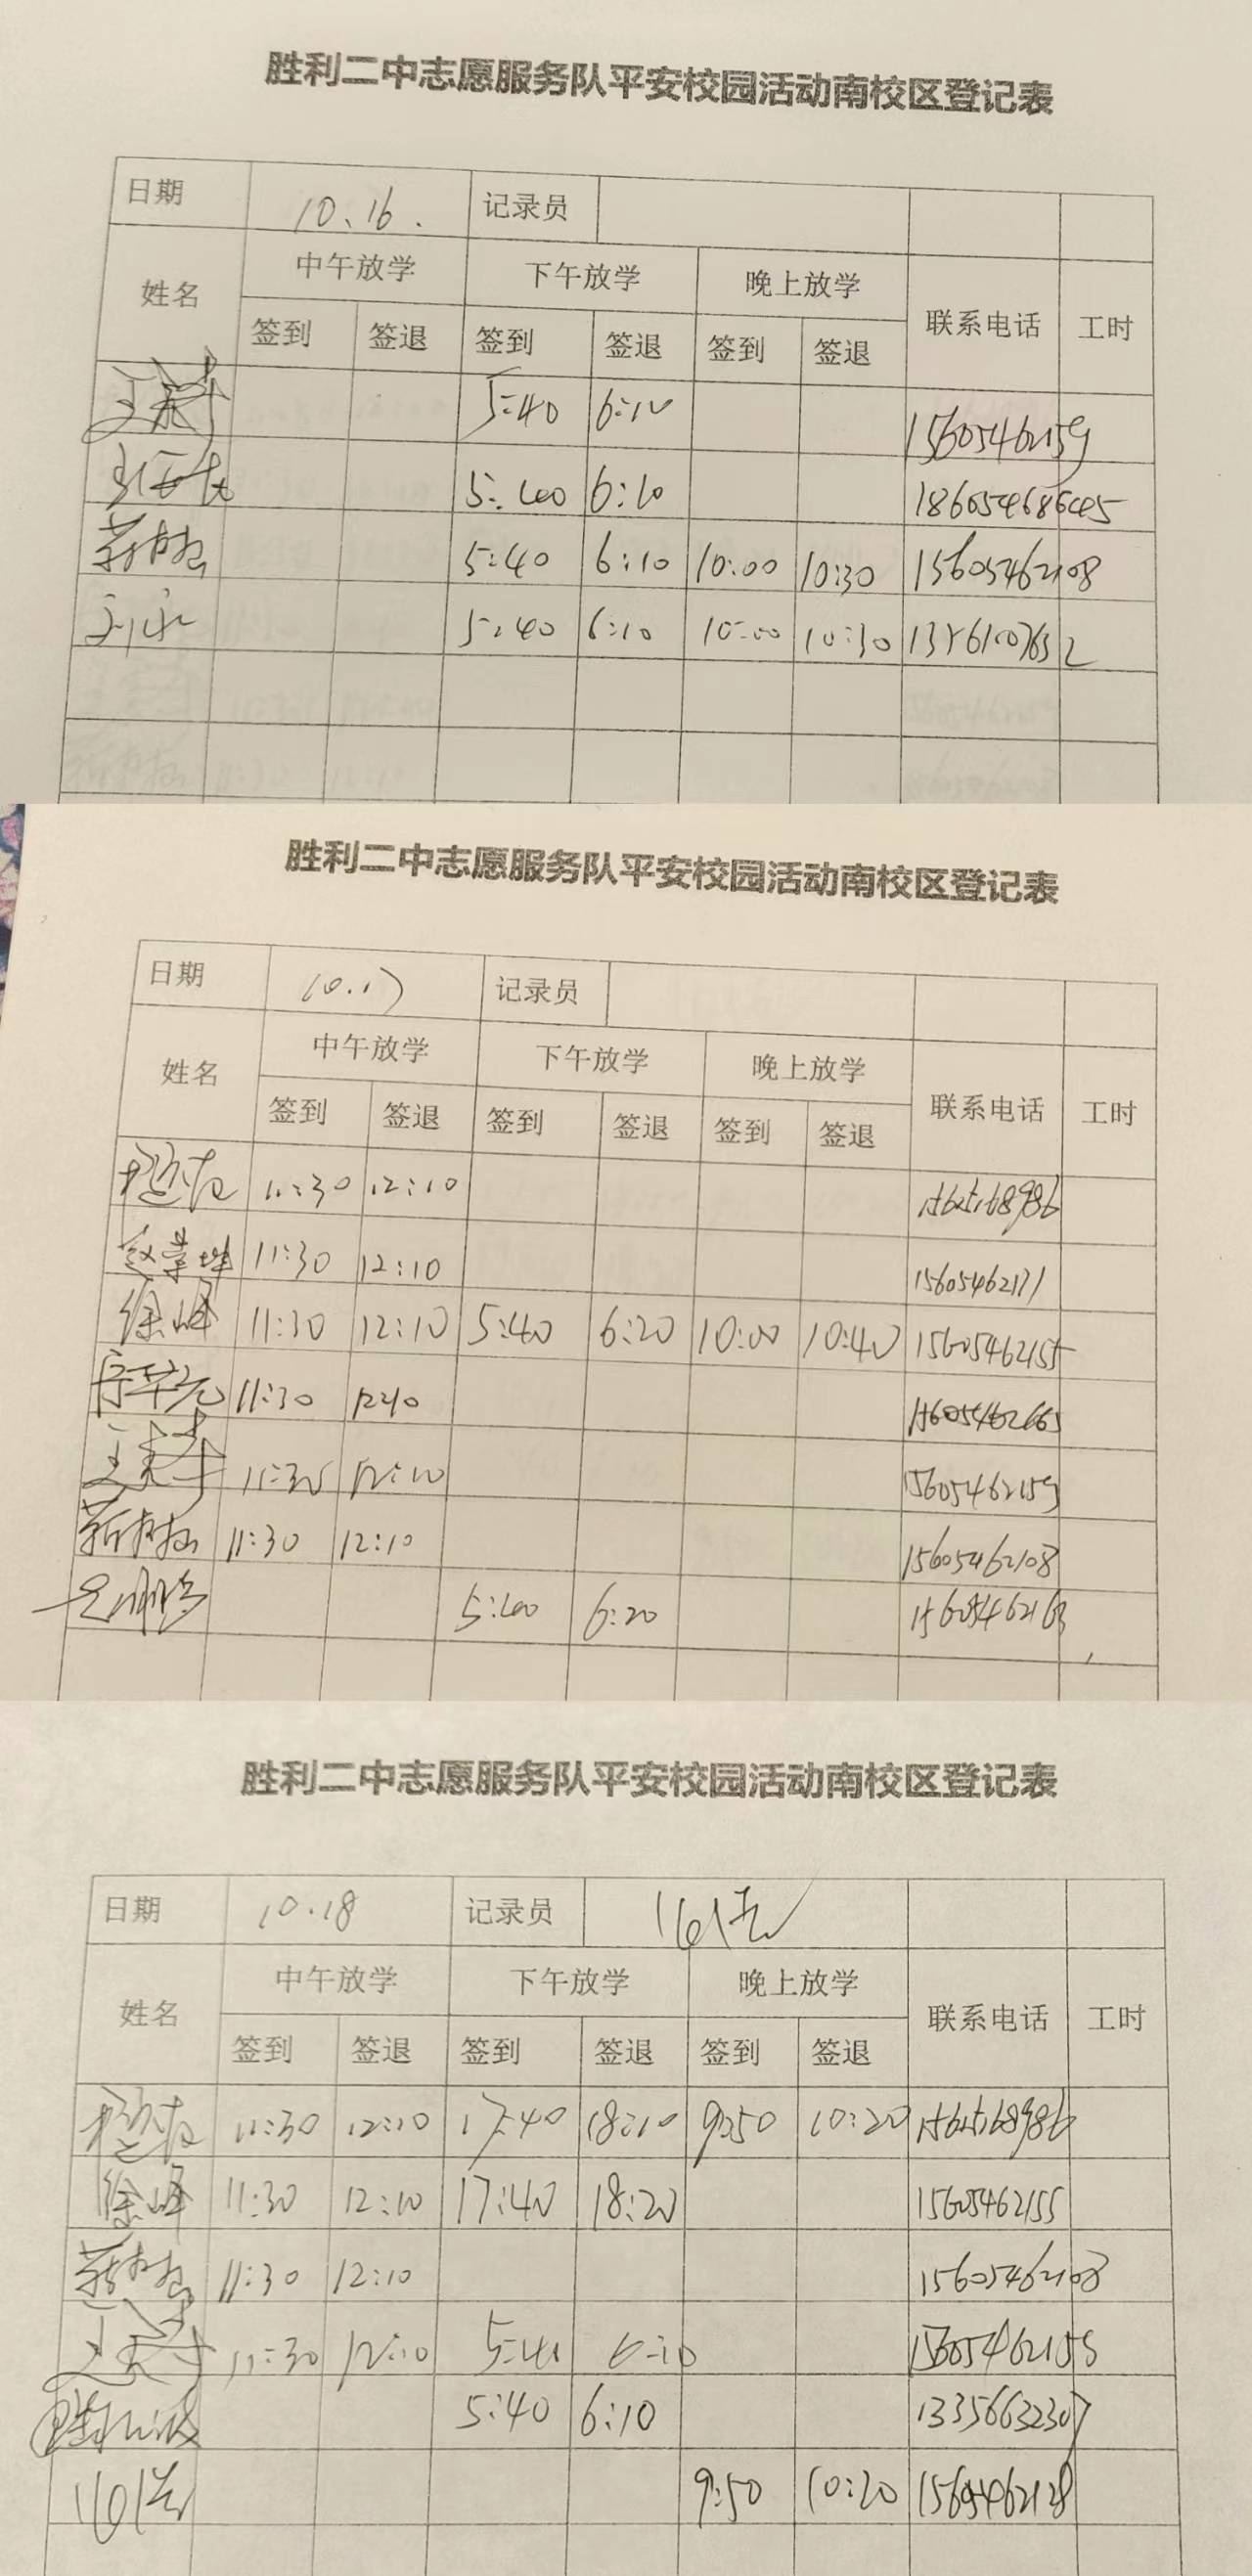 胜利二中志愿服务队平安校园活动南校区登记表
日期 10.16. 记录员
姓名 中午放学 下午放学 晚上放学 联系电话 工时
签到 签退 签到 签退 签到 签退
5:40 6:10 15605462159
5:40 6:10 18605468645
5:40 6:10 10:00 10:30 15605462108
5:40 6:10 10:00 10:30
胜利二中志愿服务队平安校园活动南校区登记表
日期 10.17 记录员
姓名 中午放学 下午放学 晚上放学 联系电话 工时
签到 签退 签到 签退 签到 签退
11:30 12:10
11:30 12:10 15605462171
徐峰 11:30 12:10 5:40 6:20 10:00 10:40 15605462155
11:30 12:10 15605462665
11:30 12:10 15605462159
11:30 12:10 15605462108
5:40 6:20 15605462163
胜利二中志愿服务队平安校园活动南校区登记表
日期 10.18 记录员
姓名 中午放学 下午放学 晚上放学 联系电话 工时
签到 签退 签到 签退 签到 签退
11:30 12:10 17:40 18:10 9:50 10:20
徐峰 11:30 12:10 17:40 18:20 15605462155
11:30 12:10 15605462108
11:30 12:10 5:40 6:10 15605462159
5:40 6:10 13356632307
9:50 10:20 15605462128